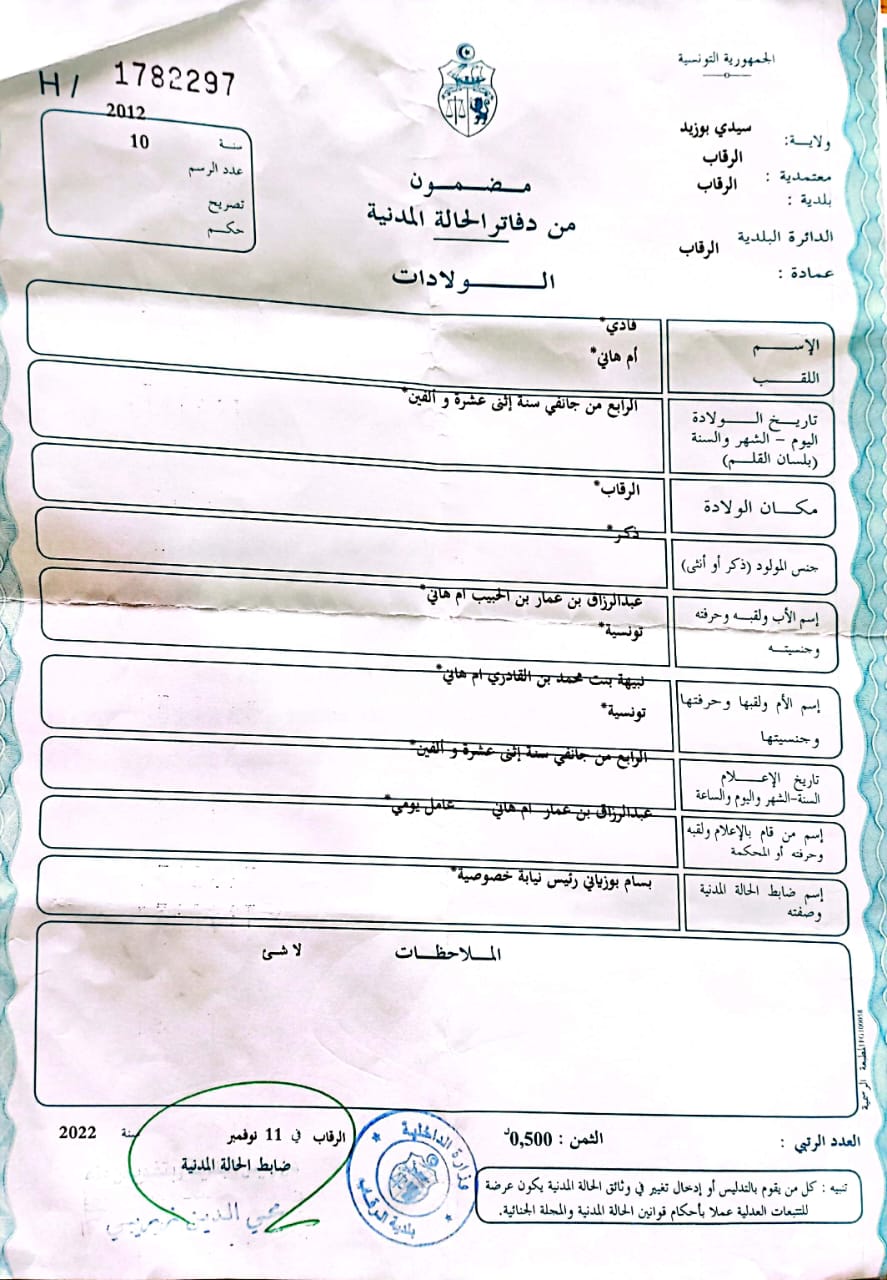 الجمهورية التونسية
H/ 1782297
ولاية: سيدي بوزيد
معتمدية : الرقاب
بلدية : الرقاب
الدائرة البلدية
عمادة : الرقاب
2012
سنة
10
عدد الرسم
تصريح
حكم
مضمون
من دفاتر الحالة المدنية
الولادات
الإسم
فادي*
اللقب
أم هاني*
تاريخ الولادة
اليوم – الشهر والسنة
(بلسان القلم)
الرابع من جانفي سنة إثنى عشرة و ألفين*
مكان الولادة
الرقاب*
جنس المولود (ذكر أو أنثى)
ذكر*
إسم الأب ولقبه وحرفته
وجنسيته
عبدالرزاق بن عمار بن الحبيب ام هاني*
تونسية*
إسم الأم ولقبها وحرفتها
وجنسيتها
نبيهة بنت محمد بن القادري ام هاني*
تونسية*
تاريخ الإعلام
السنة-الشهر واليوم والساعة
الرابع من جانفي سنة إثنى عشرة و ألفين*
إسم من قام بالإعلام ولقبه
وحرفته أو المحكمة
عبدالرزاق بن عمار ام هاني عامل يومي*
إسم ضابط الحالة المدنية
وصفته
بسام بوزياني رئيس نيابة خصوصية*
الملاحظات
لا شئ
المطبعة الرسمية
العدد الرتبي :
الثمن : 0,500د
الرقاب في 11 نوفمبر سنة 2022
ضابط الحالة المدنية
محي الدين
وزارة الداخلية
بلدية الرقاب
تنبيه : كل من يقوم بالتدليس أو إدخال تغيير في وثائق الحالة المدنية يكون عرضة
للتتبعات العدلية عملا بأحكام قوانين الحالة المدنية والمجلة الجنائية.